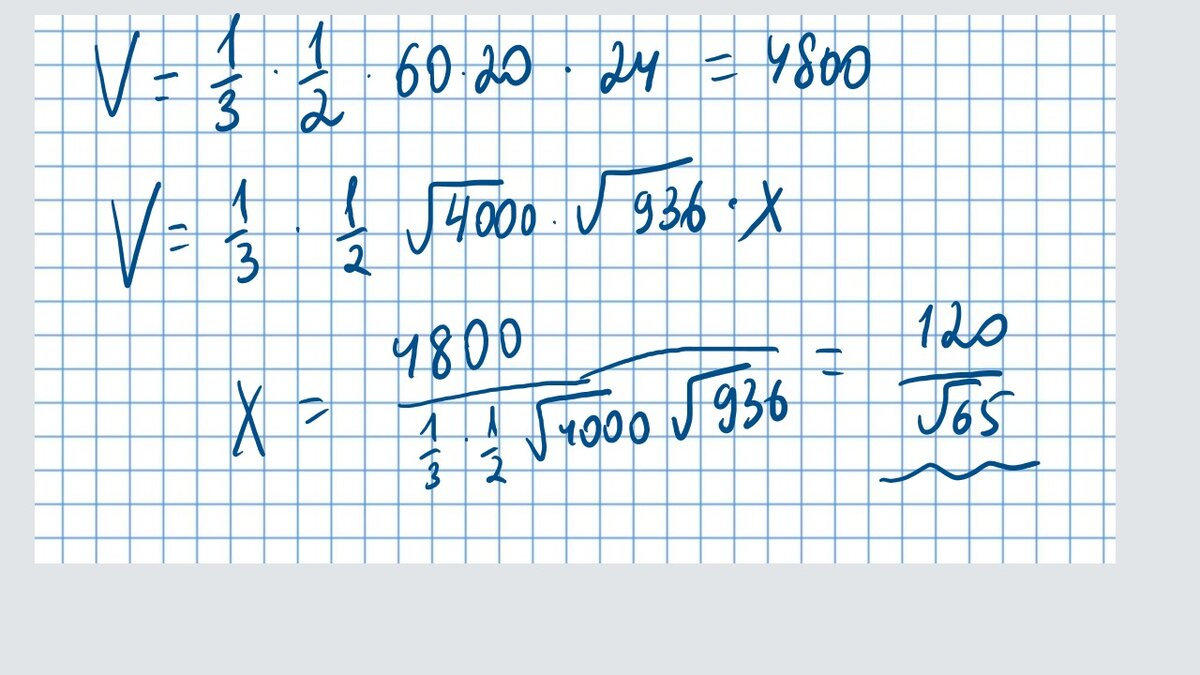 V = 1/3 · 1/2 · 60 · 20 · 24 = 4800
V = 1/3 · 1/2 √4000 · √936 · X
X = 4800 / (1/3 · 1/2 √4000 √936) = 120/√65